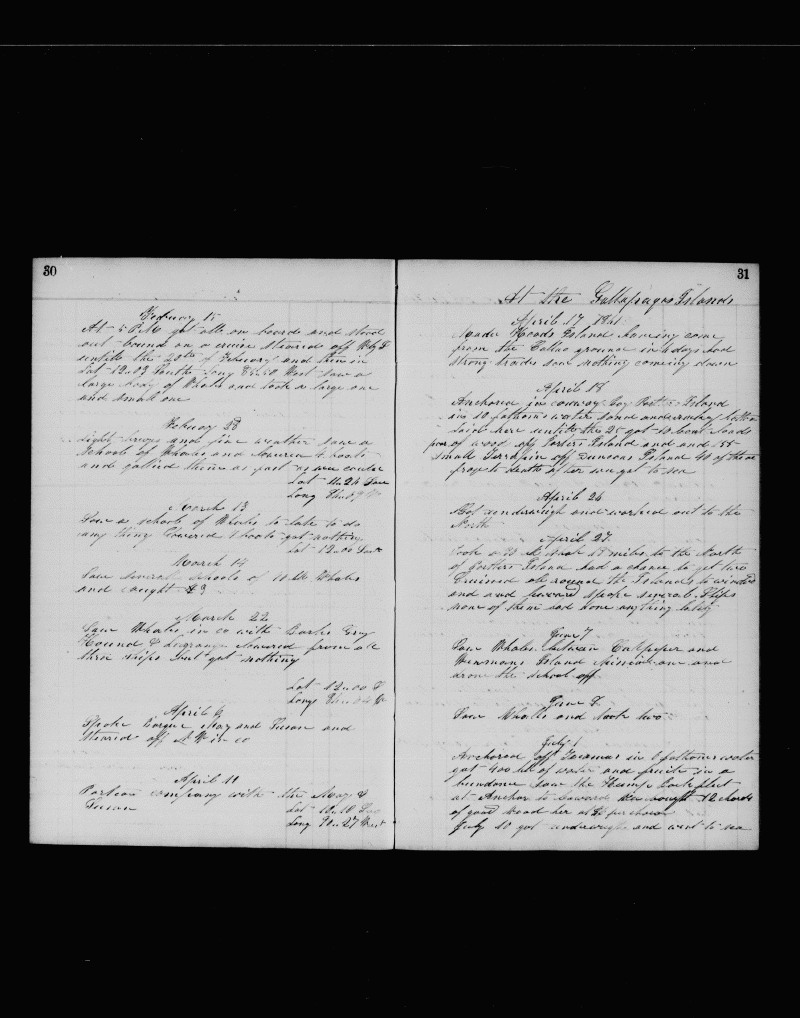 30
Febuary 15
At 5 P.M. got all on board and stood
out bound on a cruise Steared off W by S
untill the 20th of Febuary and then in
Lat 12.03 South Long 80.10 West Saw a
large body of Whales and took a large one
and small one
Febuary 28
light brezes and fine weather Saw a
Schools of Whales and lowered 4 boats
and gallied them as fast as we could
Lat 11.24 Sou
Long
March 13
Saw a school of Whales to late to do
any thing Lowered 4 boats got nothing
Lat 12.00 Sou
March 14
Saw Several Schools of Whales
and caught 3
March 22
Saw Whales in co with Barks Gay
Hound & Lagrange lowered from all
three ships but got nothing
Lat 12.00 S
Long
April 6
Spoke Barque May and Susan and
Steared off N W in co
April 11
Parted company with the May &
Susan
Lat 10.10 Sou
Long 90.27 West
31
At the Gallapagos Islands
April 17 1861
Made Hoods Island haveing come
from the Callao ground in 6 days had
strong trades saw nothing comeing down
April 18
Anchored in conway bay Porters Island
in 10 fathoms water sand and
laid here untill the 25 got 10 boat loads
of wood off Porters Island and 55
small Terrapin off Duncans Island 40 of them
froze to death after we got to sea
April 26
Got underweigh and worked out to the
North
April 27
Took a miles to the North
of Porters Island had a chance to get two
Cruised all around the Islands to windard
and and leward Spoke several Ships
none of them had done anything lately
June 7
Saw Whales between Culpeper and
Wenmans Island Missed one and
drove the school off
June 8
Saw Whales and took two
July 1
Anchored off Tacamas in 6 fathoms water
got 400 bbl of water and fruit in a
bundance Saw the Hump back fleet
at Anchor to leward bought 12 chords
of good wood her at $ per chord
July 10 got underweigh and went to sea